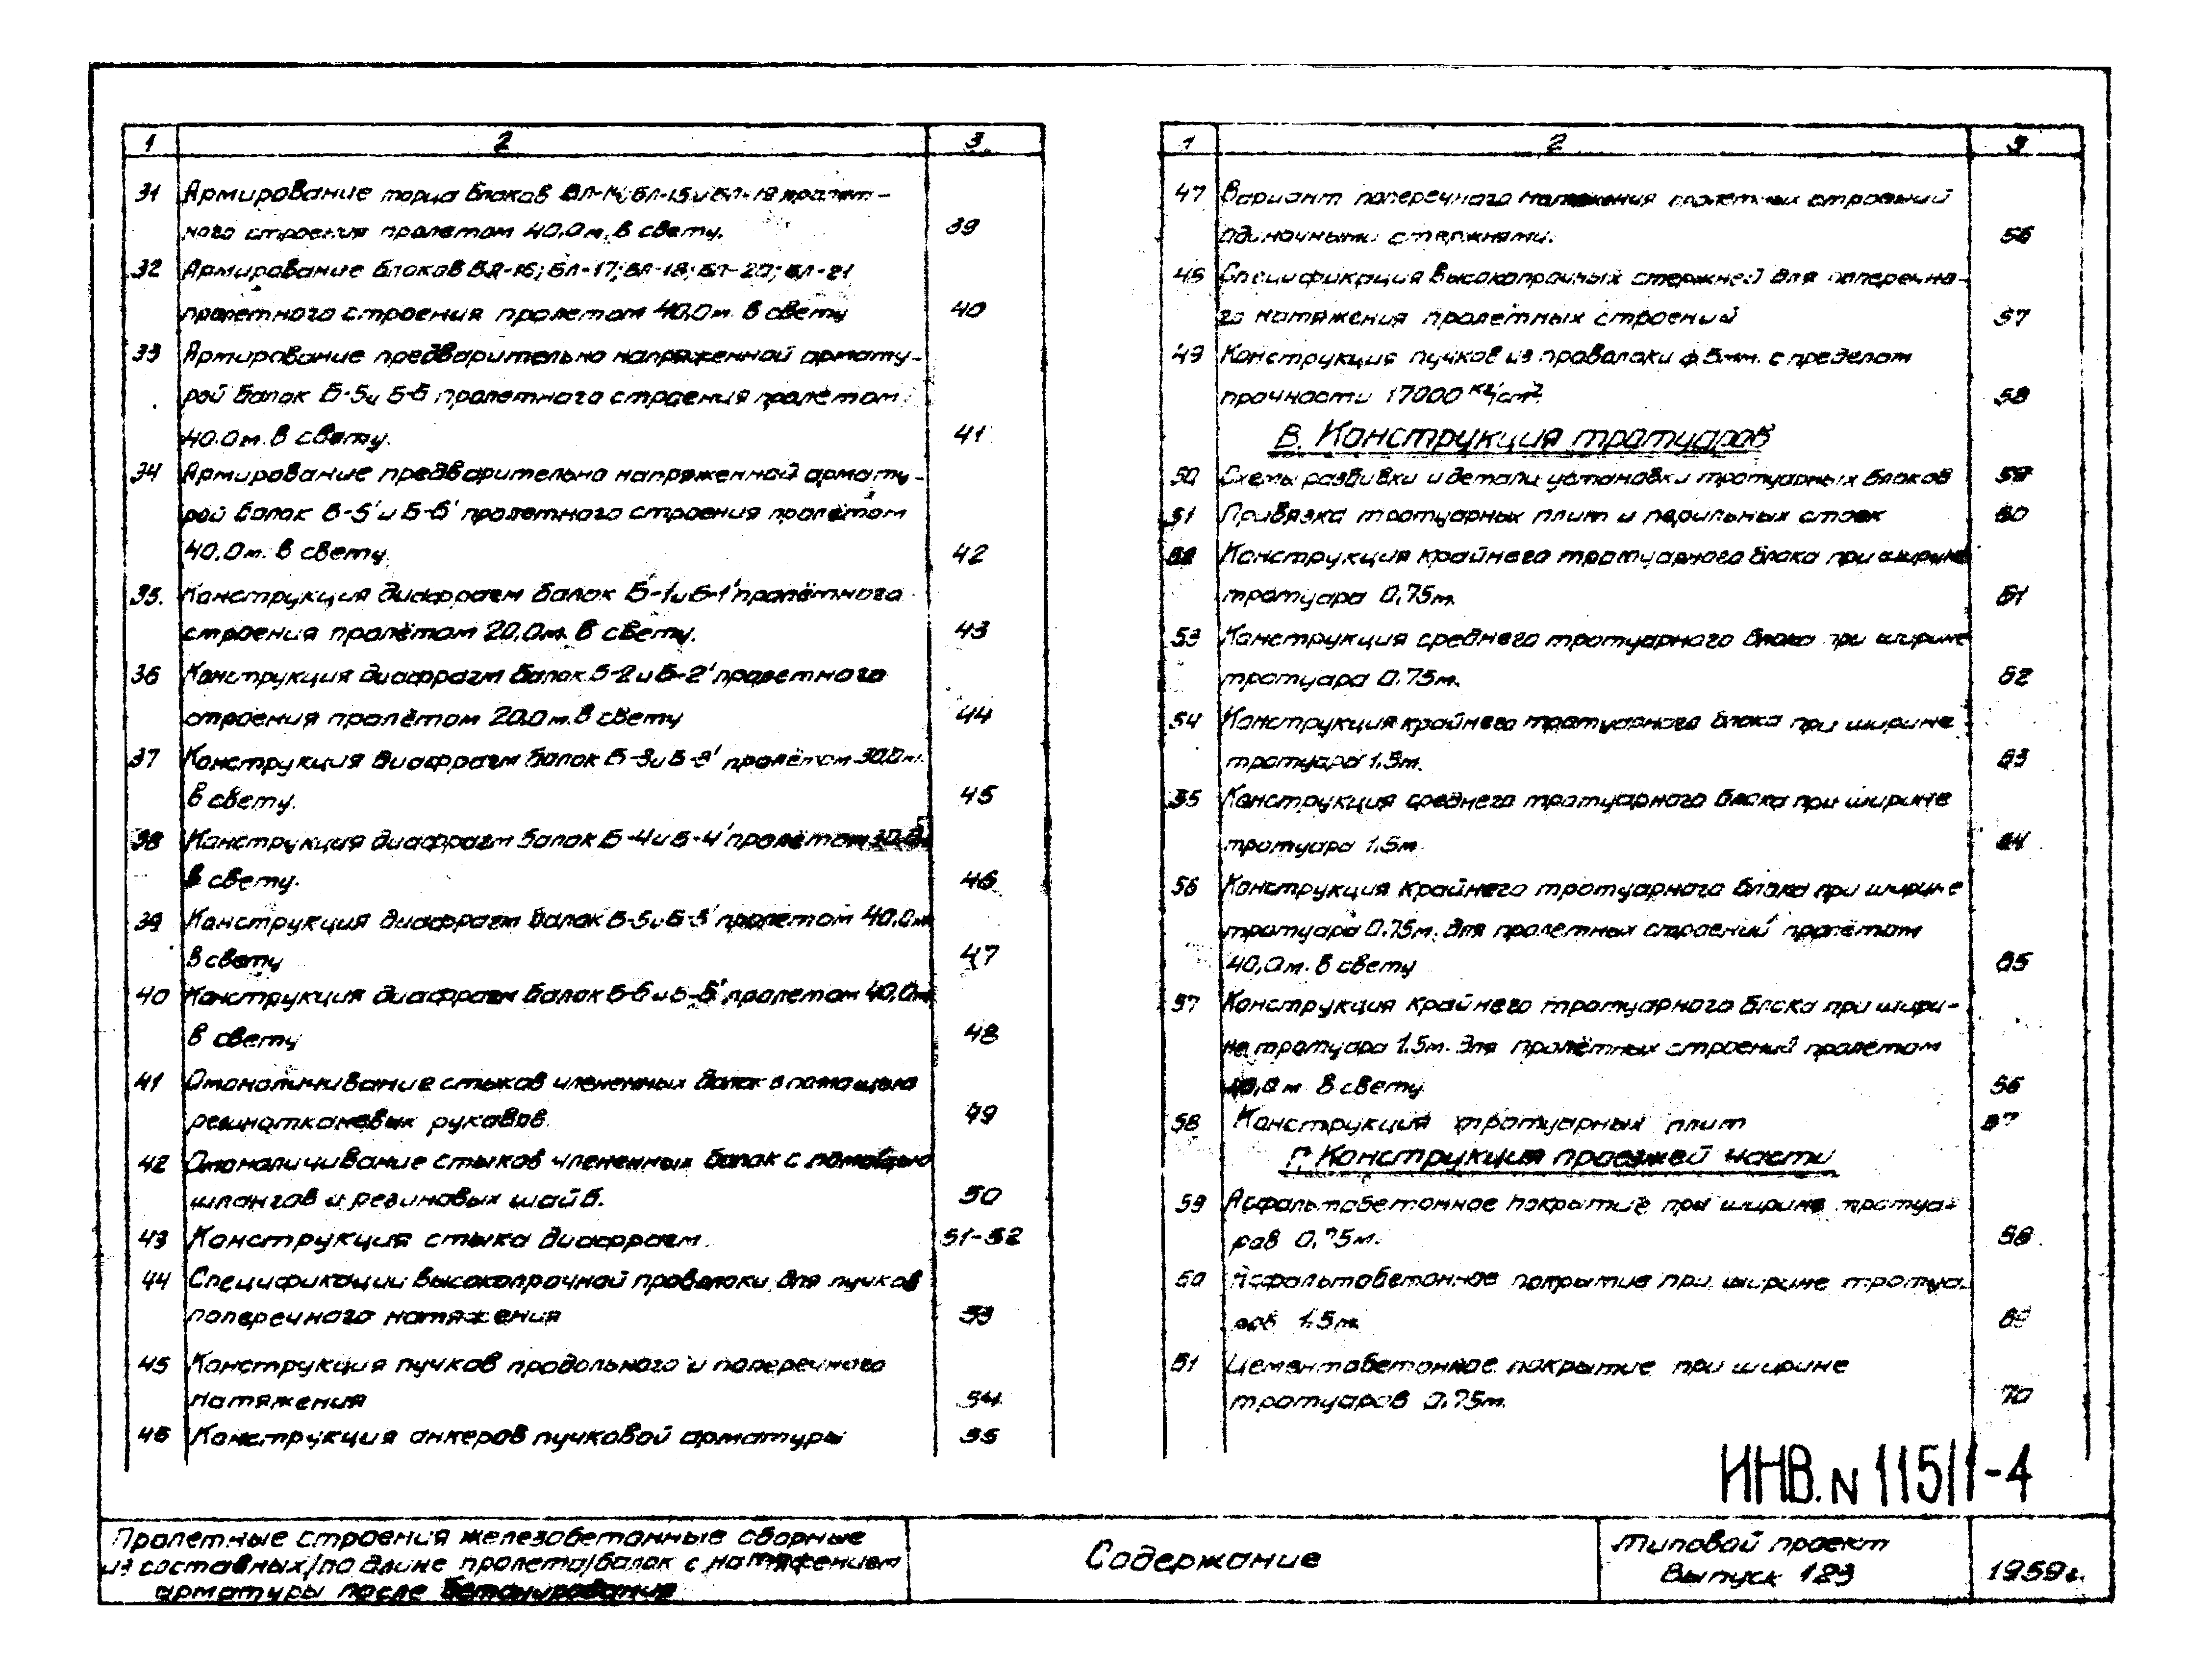 1 2 3
31 Армирование торца блоков Бл-14; Бл-15 и Бл-19 пролет-
ного строения пролетом 40,0м. в свету. 39
32 Армирование блоков Бл-16; Бл-17; Бл-18; Бл-20; Бл-21
пролетного строения пролетом 40,0м. в свету 40
33 Армирование предварительно напряженной армату-
рой балок Б-5 и Б-6 пролетного строения пролётом
40.0м. в свету. 41
34 Армирование предварительно напряженной армату-
рой балок Б-5' и Б-6' пролетного строения пролётом
40,0м. в свету 42
35. Конструкция диафрагм балок Б-1 и Б-1' пролётного
строения пролётом 20,0м. в свету. 43
36 Конструкция диафрагм балок Б-2 и Б-2' пролетного
строения пролётом 20,0м. в свету 44
37 Конструкция диафрагм балок Б-3 и Б-3' пролётом 30,0м.
в свету. 45
38 Конструкция диафрагм балок Б-4 и Б-4' пролётом 30,0м
в свету. 46
39 Конструкция диафрагм балок Б-5 и Б-5' пролетом 40,0м
в свету 47
40 Конструкция диафрагм балок Б-6 и Б-6' пролетом 40,0м
в свету 48
41 Омоноличивание стыков члененных балок с помощью
резинотканевых рукавов. 49
42 Омоноличивание стыков члененных балок с помощью
шлангов и резиновых шайб. 50
43 Конструкция стыка диафрагм. 51-52
44 Спецификации высокопрочной проволоки для пучков
поперечного натяжения 53
45 Конструкция пучков продольного и поперечного
натяжения 54
46 Конструкция анкеров пучковой арматуры 55
1 2 3
47 Вариант поперечного натяжения пролетных строений
одиночными стержнями. 56
48 Спецификация высокопрочных стержней для поперечно-
го натяжения пролётных строений 57
49 Конструкция пучков из проволоки ф 5мм. с пределом
прочности 17000 кг/см² 58
В. Конструкция тротуаров
50 Схемы разбивки и детали установки тротуарных блоков 59
51 Привязка тротуарных плит и перильных стоек 60
52 Конструкция крайнего тротуарного блока при ширине
тротуара 0,75м. 61
53 Конструкция среднего тротуарного блока при ширине
тротуара 0,75м. 62
54 Конструкция крайнего тротуарного блока при ширине
тротуара 1,5м. 63
55 Конструкция среднего тротуарного блока при ширине
тротуара 1,5м 64
56 Конструкция крайнего тротуарного блока при ширине
тротуара 0,75м. для пролетных строений пролётом
40,0м. в свету 65
57 Конструкция крайнего тротуарного блока при шири-
не тротуара 1,5м. для пролётных строений пролётом
40,0м в свету 66
58 Конструкция тротуарных плит 67
Г. Конструкция проезжей части
59 Асфальтобетонное покрытие при ширине тротуа-
ров 0,75м. 68
60 Асфальтобетонное покрытие при ширине тротуа-
ров 1,5м 69
61 Цементобетонное покрытие при ширине
тротуаров 0,75м. 70
ИНВ. N 115/1-4
Пролетные строения железобетонные сборные
из составных/по длине пролета/балок с натяжением
арматуры после бетонирования
Содержание
Типовой проект
Выпуск 123
1959г.